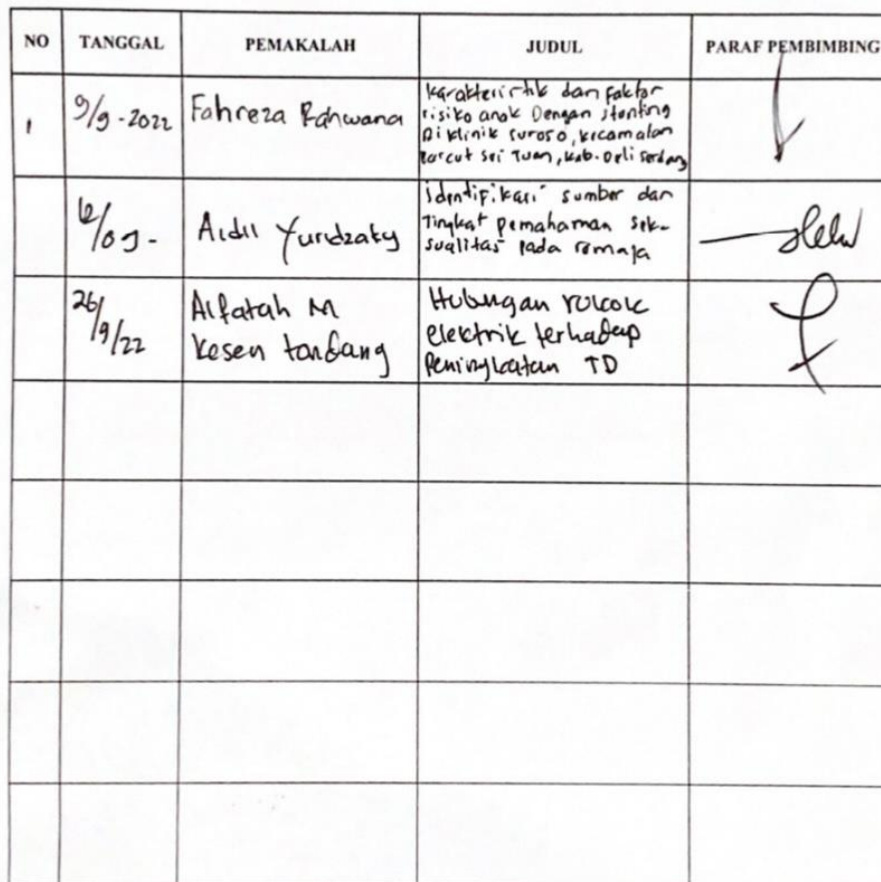 NO TANGGAL PEMAKALAH JUDUL PARAF PEMBIMBING
1 9/9-2022 Fahreza Rahwana
Karakteristik dan faktor
risiko anak Dengan stenting
Di klinik suroso, kecamatan
Percut sei Tuan, Kab. Deli serdang
Aidil Yurdzaky
identifikasi sumber dan
Tingkat pemahaman sek-
sualitas pada remaja
26/9/22
Alfatah M
Kesen tandang
Hubungan rokok
elektrik terhadap
Peningkatan TD